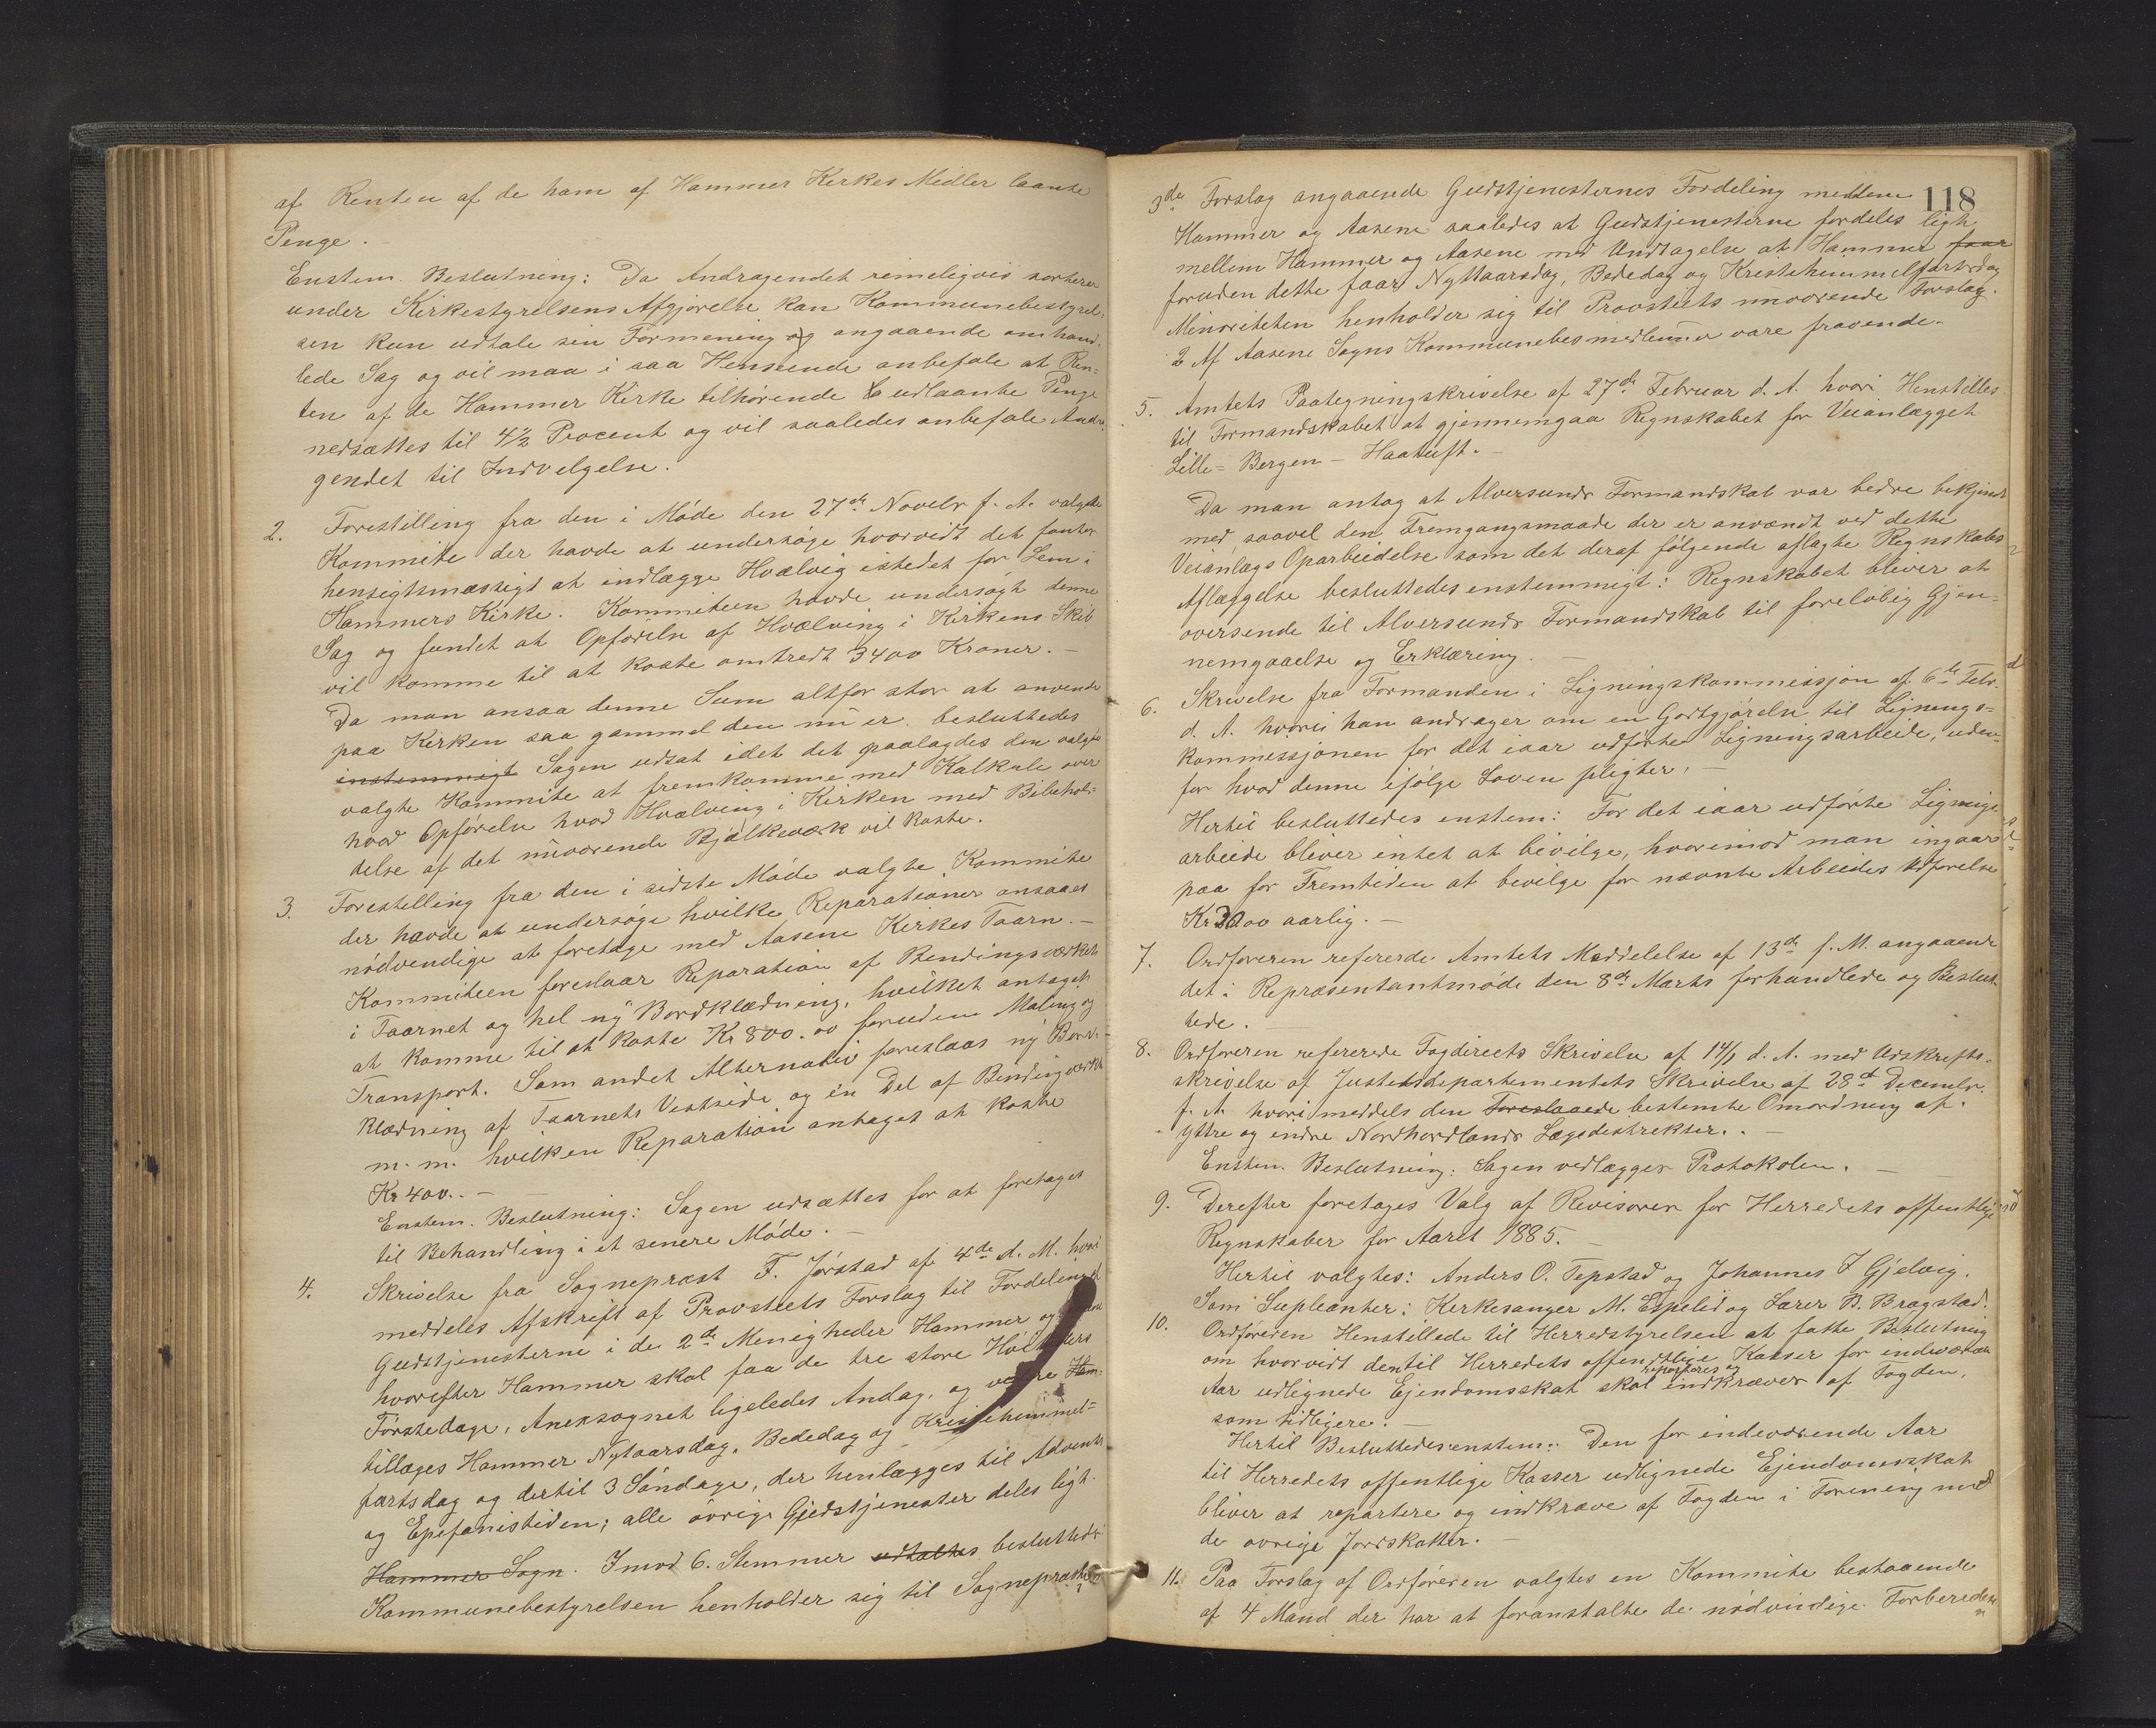 af Renten af de ham af Hammer Kirkes Midler laante
Penge.
Enstem. Beslutning: Da Andragendet rimeligvis sorterer
under Kirkestyrelsens Afgjørelse kan Kommunebestyrel-
sen kun udtale sin Formening og angaaende omhand-
lede Sag og vil maa i saa Henseende anbefale at Ren-
ten af de Hammer Kirke tilhørende udlaante Penge
nedsættes til 4½ Procent og vil saaledes anbefale Andra
gendet til Indvelgelse.
2. Forestilling fra den i Møde den 27de Novebr f. A. valgte
Kommite der havde at undersøge hvorvidt det fantes
hensigtsmæssigt at indlægge Hvælvig istedet for Lem i
Hammers Kirke. Kommiteen havde undersøgt denne
Sag og fundet at Opførelse af Hvælving i Kirkens Skib
vil komme til at koste omtredt 3400 Kroner. -
Da man ansaa denne Sum altfor stor at anvende
paa Kirken saa gammel den nu er. besluttedes
enstemmigt Sagen udsat idet det paalagdes den valgte
valgte Kommite at fremkomme med Kalkule over
hvad Opførelse hvad Hvælving i Kirken med Bibehol-
delse af det nuværende Bjælkeværk vil koste.
3. Forestelling fra den i sidste Møde valgte Kommite
der havde at undersøge hvilke Reparationer ansaaes
nødvendige at foretage med Aasene Kirkes Taarn. -
Kommiteen foreslaar Reparation af Bendingsværket
i Taarnet og hel ny Bordklædning, hvilket antages
at komme til at koste Kr 800.00 foruden Maling og
Transport. Som andet Alternativ foreslaas ny Bord-
klædning af Taarnets Vestside og en Del af Bindingværket
m. m. hvilken Reparation antaget at koste
Kr 400. -
Enstem. Beslutning: Sagen udsættes for at foretages
til Behandling i et senere Møde. -
4. Skrivelse fra Sognepræst F. Jørstad af 4de d. M. hvori
meddeles Afskrift af Provsteets Forslag til Fordelinget
Gudstjenesterne i de 2de Menigheder Hammer og
hvorefter Hammer skal faa de tre store Høitiders
Førstedage, Anexsognet ligeledes Andag, og
tillæges Hammer Nytaarsdag, Bededag og Kristihimmel-
fartsdag og dertil 3 Søndage, der henlægges til Advents
og Epefanistiden; alle øvrige Gjedstjenester deles ligt.
Hammer Sogn. Imod 6. Stemmer udtaltes besluttedes
Kommunebestyrelsen henholder sig til Sognepræstens
118
3die Forslag angaaende Gudstjenesternes Fordeling mellem
Hammer og Aasene saaledes at Gudstjenesterne fordeles ligt
mellem Hammer og Aasene med Undtagelse at Hammer faar
foruden dette faar Nyttaarsdag, Bededag og Kristehimmelfartsdag
Minoriteten henholder sig til Provsteets nuværende Forslag.
2 Af Aasene Sogns Kommunebesmedlemmer vare fravende.
5. Amtets Paategningskrivelse af 27de Februar d. A. hvori Henstilles
til Formandskabet at gjennemgaa Regnskabet for Veianlægget
Lille-Bergen - Haatuft. -
Da man antog at Alversunds Formandskab var bedre bekjendt
med saavel den Fremgangsmaade der er anvændt ved dette
Veianlægs Oparbeidelse som det deraf følgende aflagte Regnskabs
Aflæggelse besluttedes enstemmigt: Regnskabet bliver at
oversende til Alversunds Formandskab til foreløbig Gjen-
nemgaaelse og Erklæring. -
6. Skrivelse fra Formanden i Ligningskommissjon af 6te Febr.
d. A. hvori han andrager om en Godtgjørelse til Lignings-
kommessjonen for det iaar udførte Ligningsarbeide, uden-
for hvad denne ifølge Loven pligter. -
Hertil besluttedes enstem: For det iaar udførte Lignigs-
arbeide bliver intet at bivilge, hvorimod man ingaar
paa for Fremtiden at bevilge for nævnte Arbeides Udførelse
Kr 30.00 aarlig. -
7. Ordføreren refererde Amtets Meddelelse af 13de f. M. angaaende
det i Repræsentantmøde den 8de Marts forhandlede og Beslut-
tede.
8. Ordføreren refererede Fogdireets Skrivelse af 14/1 d. A. med Udskrifts-
skrivelse af Justetsdepartementets Skrivelse af 28de Decembr.
f. A. hvori meddels den Foreslaaede bestemte Omordning af
yttre og indre Nordhordlands Lægedestrekter. -
Enstem. Beslutning: Sagen vedlægges Protokolen. -
9. Derefter foretages Valg af Revisorer for Herredets offentlige
Regnskaber for Aaret 1885. -
Hertil valgtes: Anders O. Tepstad og Johannes J Gjelvig.
Som Supleanter: Kirkesanger M. Espelid og Lærer B. Bragstad.
10. Ordføreren Henstillede til Herredstyrelsen at fatte Beslutning
om hvorvidt den til Herredets offendtlige Kasser for indeværen
repartères og
Aar udlignede Ejendomsskat skal indkræves af Fogden,
som tidligere. -
Hertil Besluttedes enstem: Den for indeværende Aar
til Herredets offentlige Kasser udlignede Ejendomsskat
bliver at repartere og indkræve af Fogden i Forening med
de øvrige Jordskatter. -
11. Paa Forslag af Ordføreren valgtes en Kommite bestaaende
af 4 Mand der har at foranstalte de nødvindige Forbereden